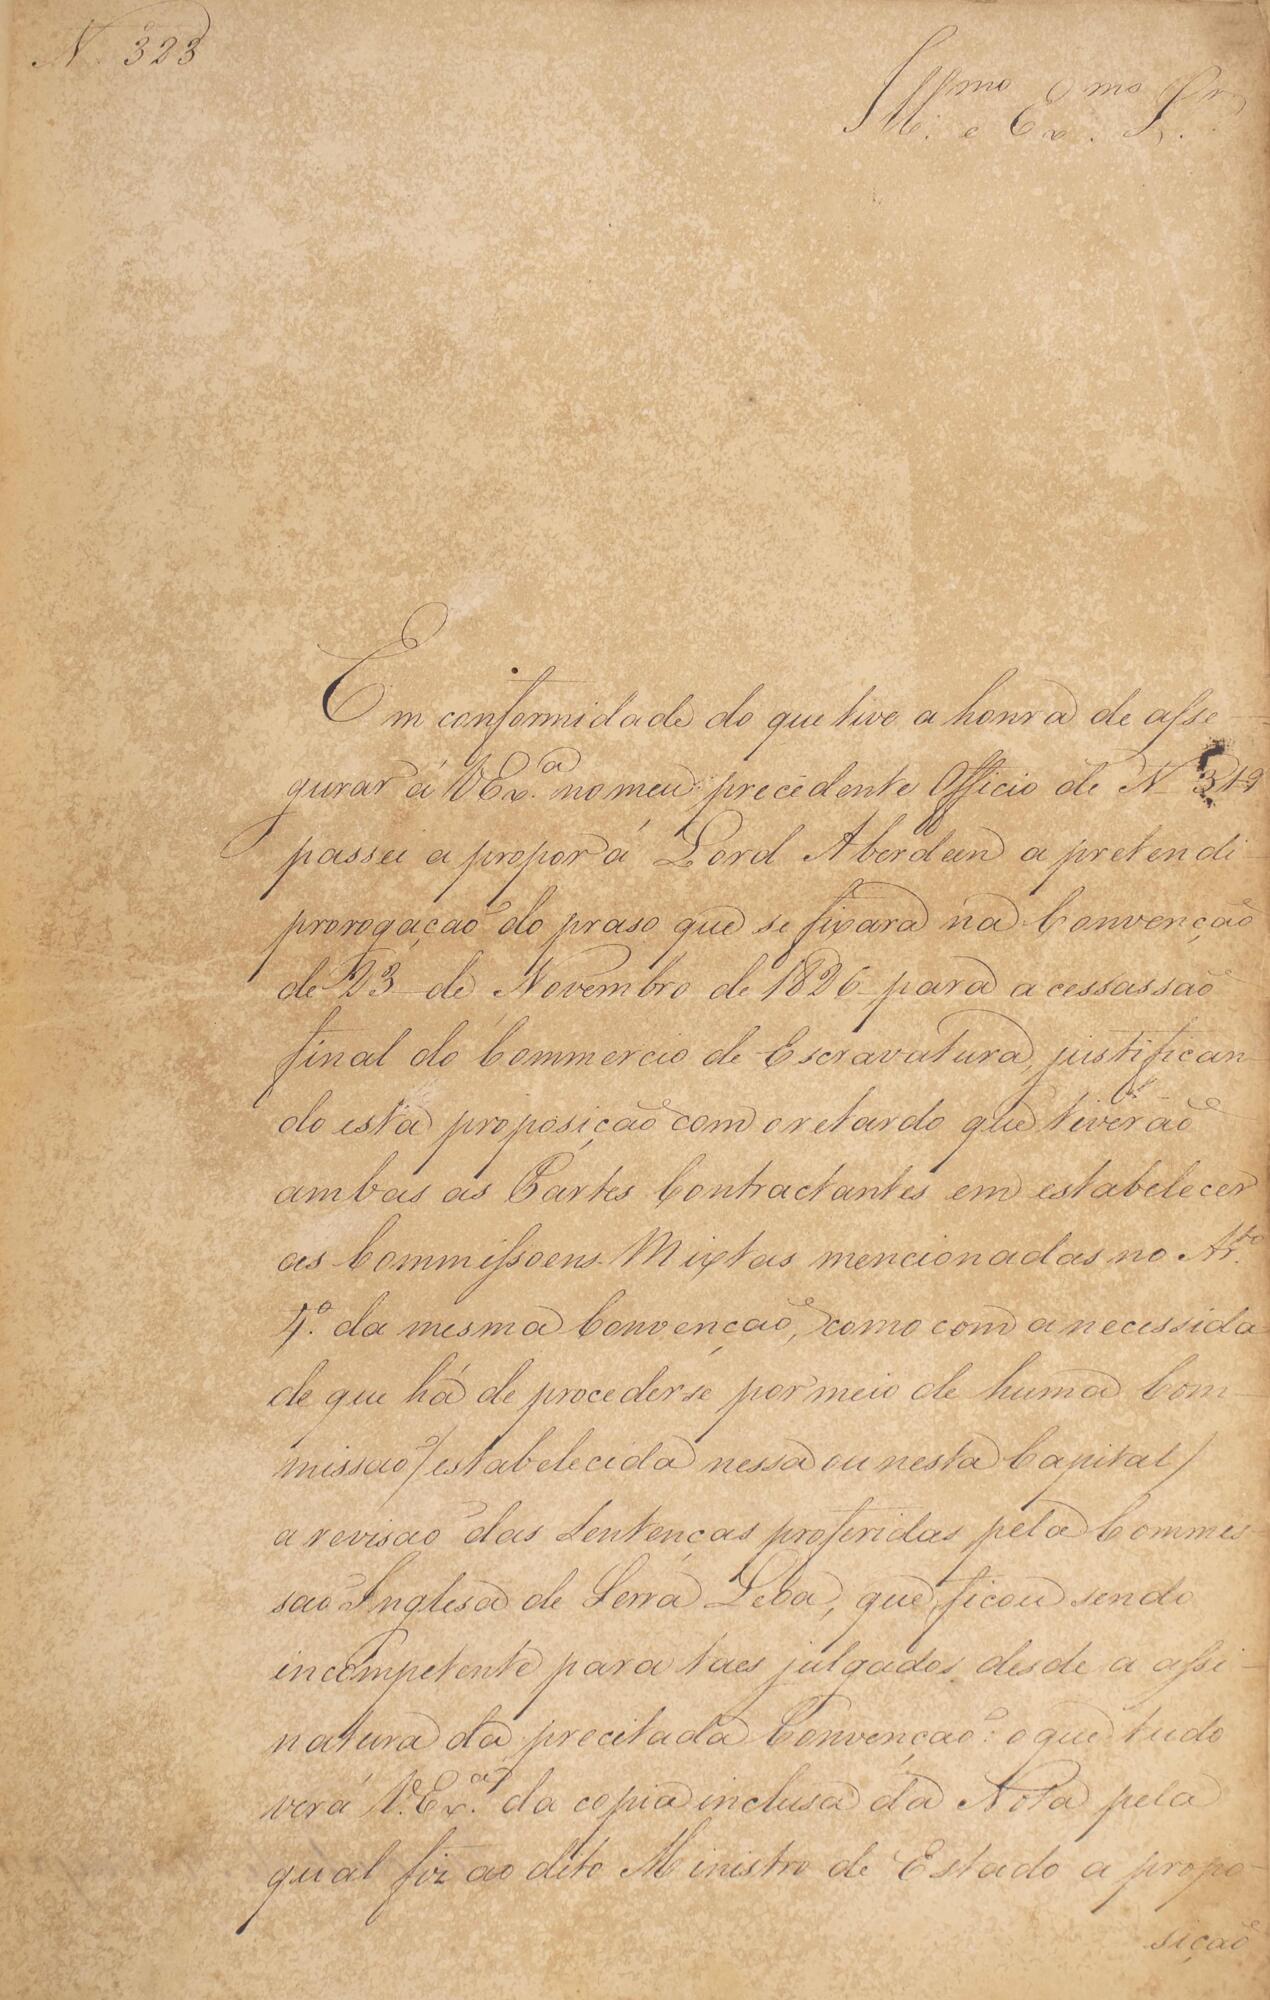 N. 323
Ill.mo e Ex.mo Sr.
Em conformidade do que tive a honra de asse-
gurar á V Ex.a no meu precedente Officio de N 319
passei a propor á Lord Aberdeen a pretendi-
prorogação do praso que se fixara na Convenção
de 23 de Novembro de 1826 para a cessassaõ
final do Commercio de Escravatura, justifican-
do esta proposição com o retardo que tiverão
ambas as Partes Contractantes em estabelecer
as Commissoens Mixtas mencionadas no Ar.to
4.o da mesma Convenção, como com a necessida-
de que há de proceder-se por meio de huma Com-
missaõ / estabelecida nessa ou nesta Capital /
a revisaõ das Sentenças proferidas pela Commis-
saõ Inglesa de Serra Leoa, que ficou sendo
incompetente para taes julgados desde a assi-
natura da precitada Convençaõ: o que tudo
verá V. Ex.a da copia inclusa da Nota pela
qual fiz ao dito Ministro de Estado a propo-
sição